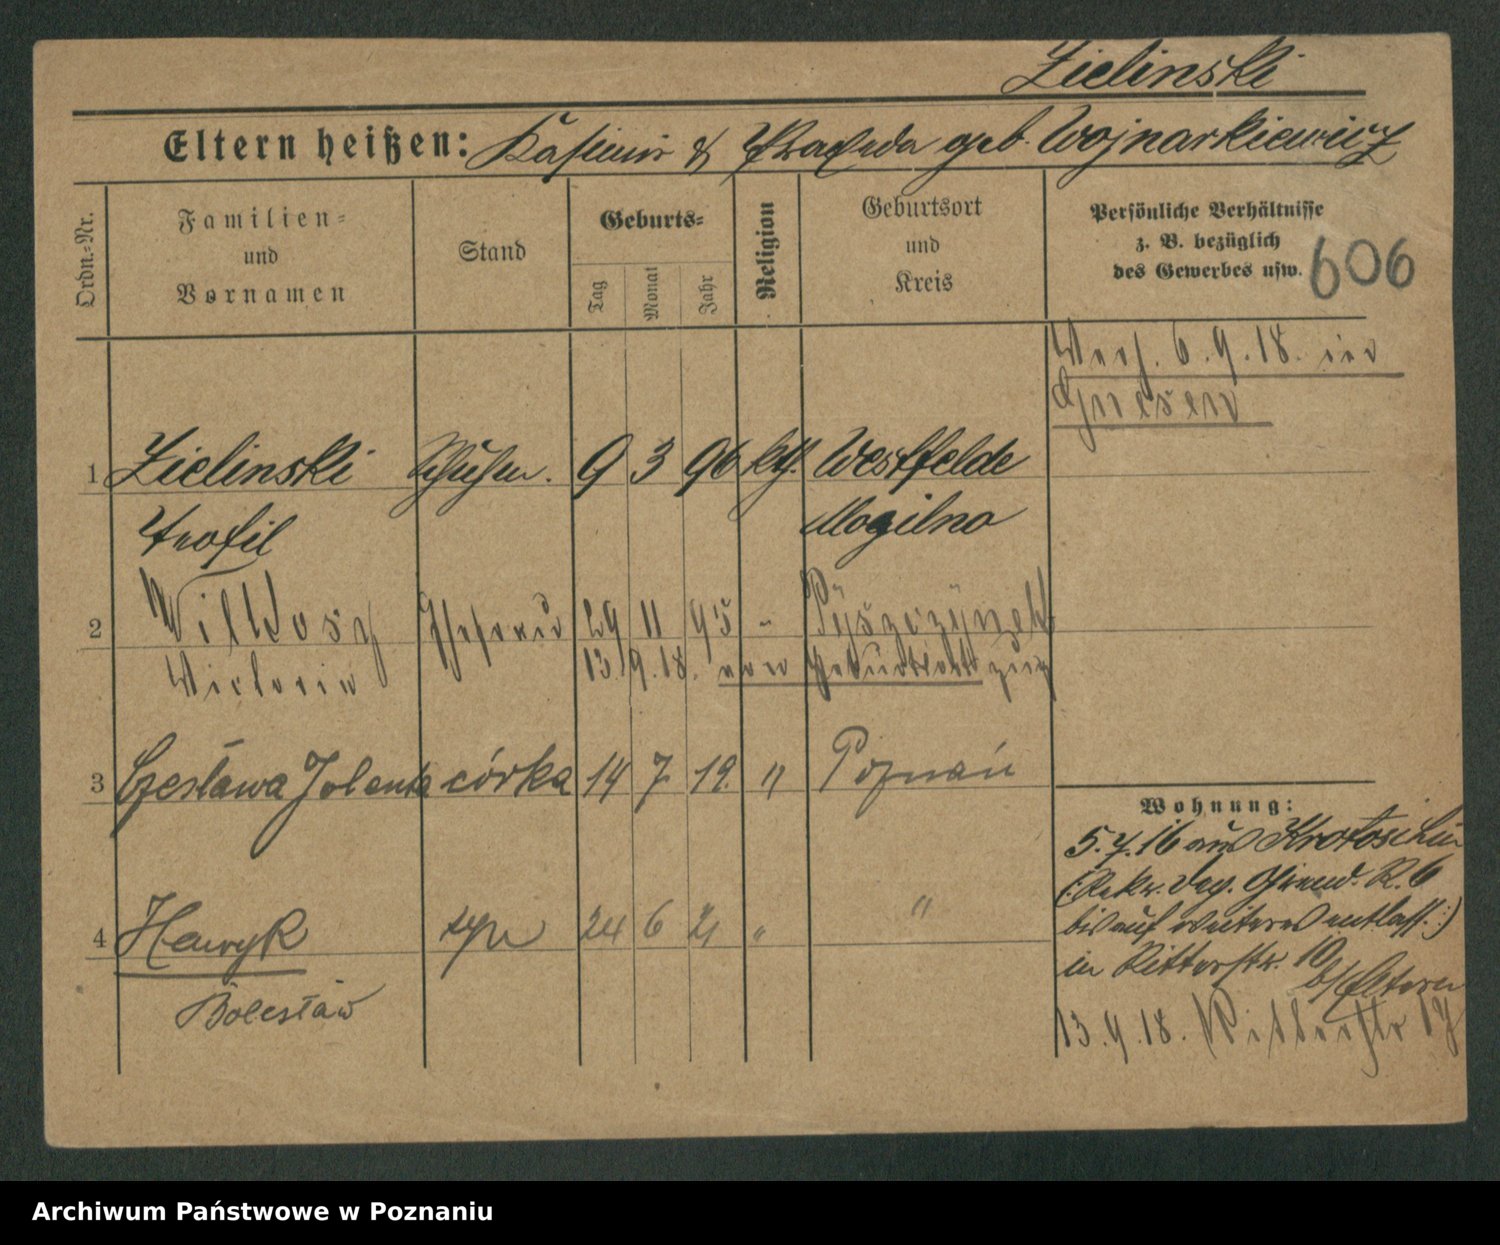 Zielinski
Eltern heißen: Kasimir & Praxeda geb. Wojnarkiewicz
Ordn.=Nr.
Familien=
und
Vornamen
Stand
Geburts=
Tag
Monat
Jahr
Religion
Geburtsort
und
Kreis
Persönliche Verhältnisse
z. B. bezüglich
des Gewerbes usw.
606
Verh. 6.9.18. in
Gnesen
1 Zielinski Schuhm. 9 3 96 kth. Westfelde
Teofil Mogilno
2 Ehefrau 29 11 95 "
Victoria 13.9.18. von Geburtsort zug
3 Czesława Jolenta córka 14 7 19. " Poznań
4 Henryk syn 24 6 21 " "
Bolesław
Wohnung:
5.7.16 aus Krotoschin
R. 6
bis auf weiteres entlass.:)
in Ritterstr. 10
b/Eltern
13.9.18. Ritterstr 19
Archiwum Państwowe w Poznaniu